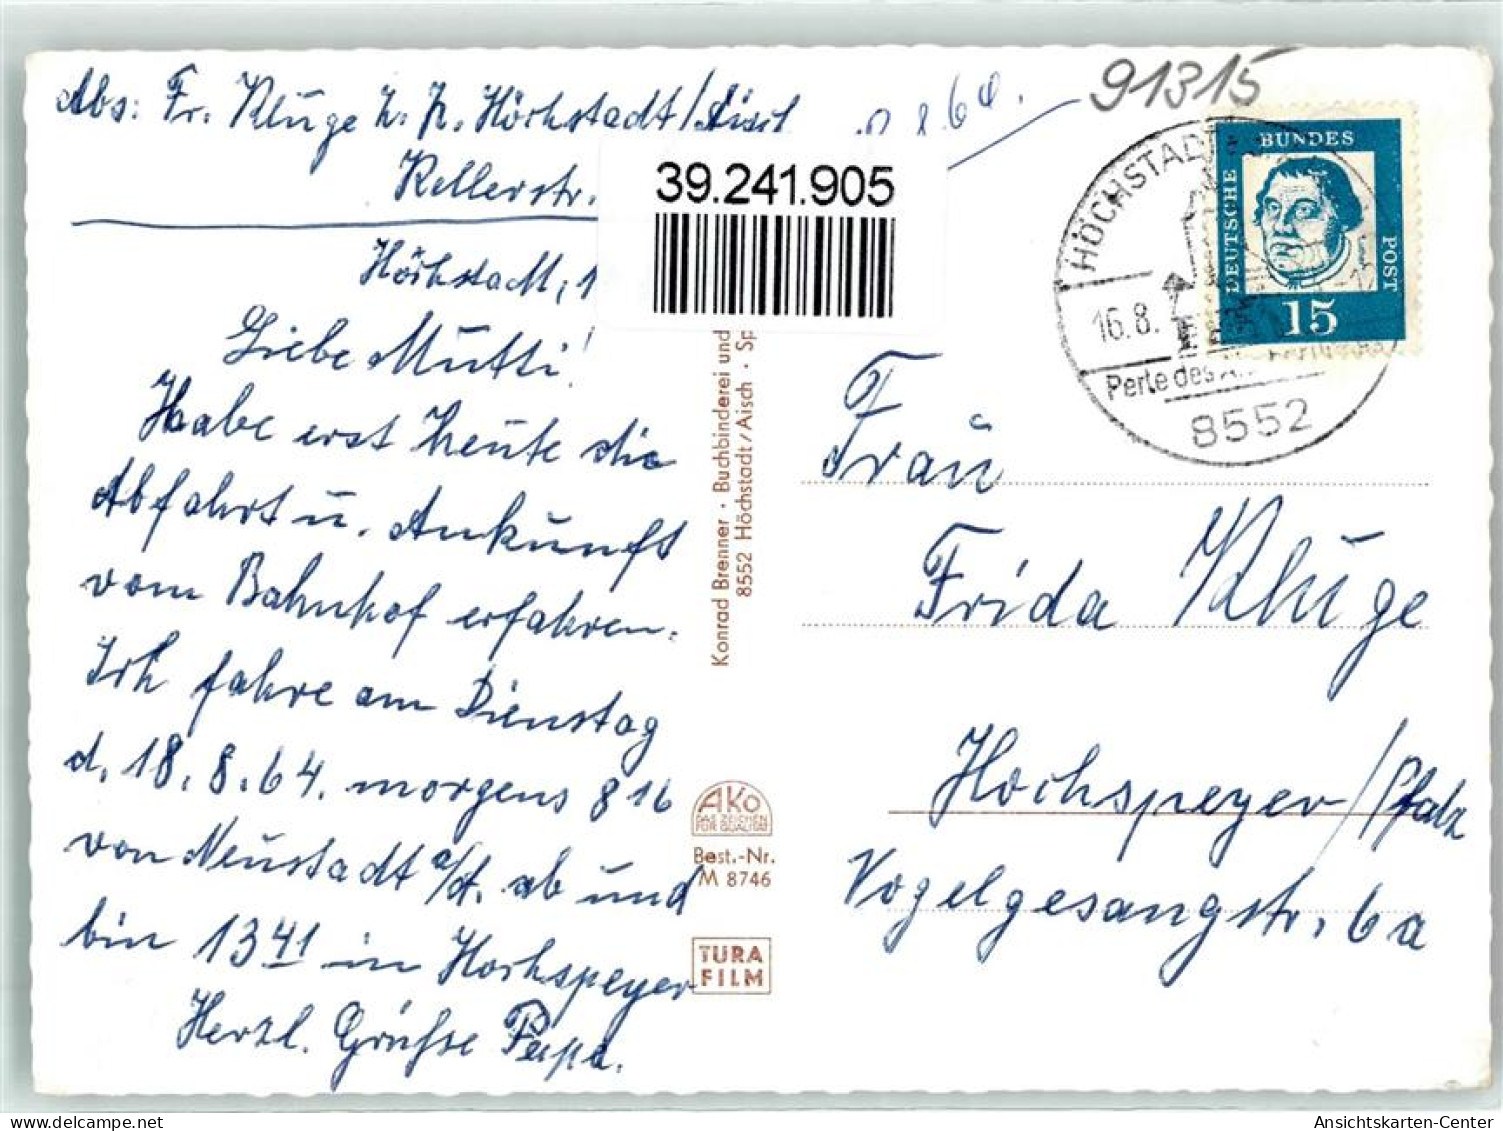 Abs: Fr. Kluge z. Z. Höchstadt/Aisch
Kellerstr.
91315
39.241.905
Höchstadt, 1
Liebe Mutti!
Habe erst heute die
Abfahrt u. Ankunft
vom Bahnhof erfahren.
Ich fahre am Dienstag
d. 18.8.64. morgens 8 16
von Neustadt a/A. ab und
bin 13 41 in Hochspeyer
Herzl. Grüße Papa.
Konrad Brenner · Buchbinderei und
8552 Höchstadt/Aisch · Sp
AKO
DAS ZEICHEN
FÜR QUALITÄT
Best.-Nr.
M 8746
TURA
FILM
HÖCHSTADT
16.8.
Perte des
8552
DEUTSCHE
BUNDES
POST
15
Frau
Frida Kluge
Hochspeyer/Pfalz
Vogelgesangstr. 6a
Ansichtskarten-Center